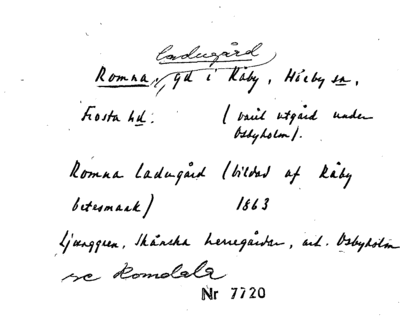 ladugård
Romna, gd i Råby, Hörby sn,
Frosta hd. (varit utgård under
Osbyholm).
Romna ladugård (bildad af Råby
betesmark) 1863
Ljunggren, Skånska herregårdar, art. Osbyholm
se Romdala
Nr 7720